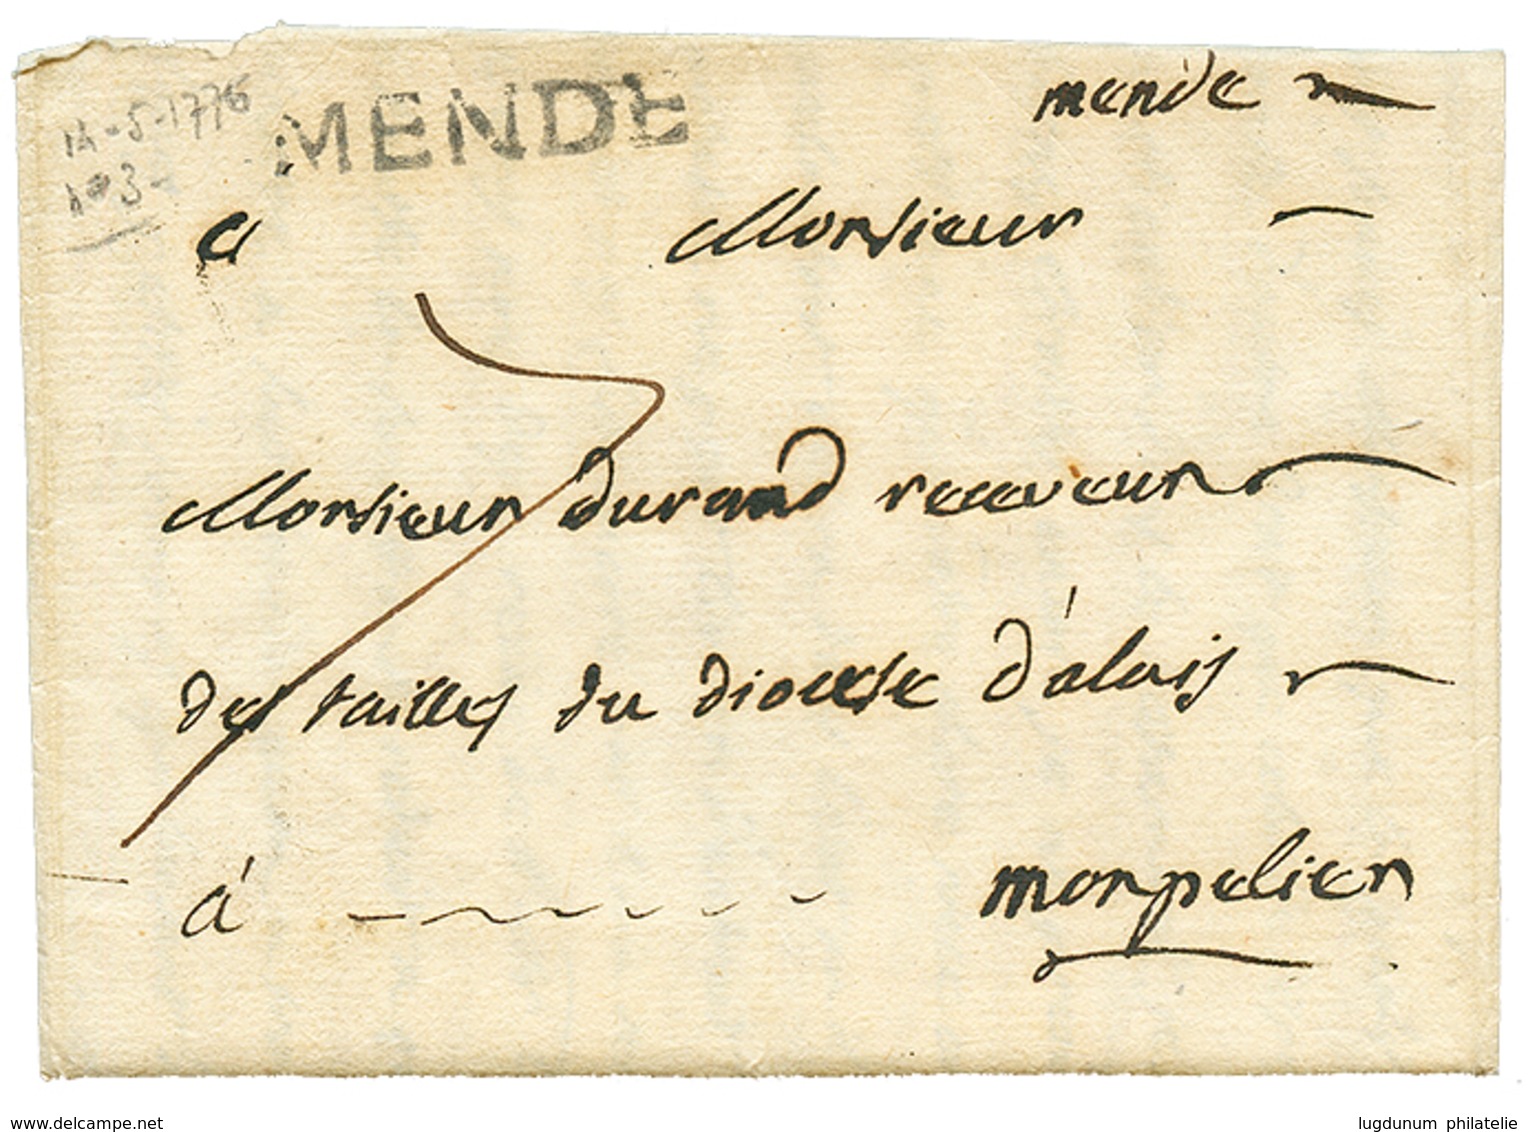 mende
14-5-1776
MENDE
n° 3-
a Monsieur
7
Monsieur durand receveur
des tailles du diocese d'alais
á monpelier
www.delcampe.net
lugdunum philatelie